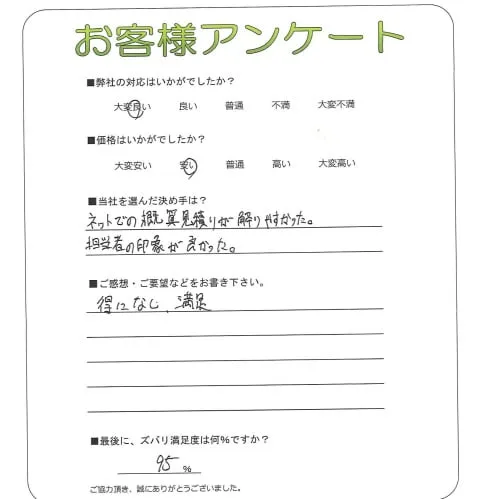 お客様アンケート
■弊社の対応はいかがでしたか？
大変良い 良い 普通 不満 大変不満
■価格はいかがでしたか？
大変安い 安い 普通 高い 大変高い
■当社を選んだ決め手は？
ネットでの概算見積りが解りやすかった。
担当者の印象が良かった。
■ご感想・ご要望などをお書き下さい。
得になし、満足
■最後に、ズバリ満足度は何％ですか？
95 ％
ご協力頂き、誠にありがとうございました。